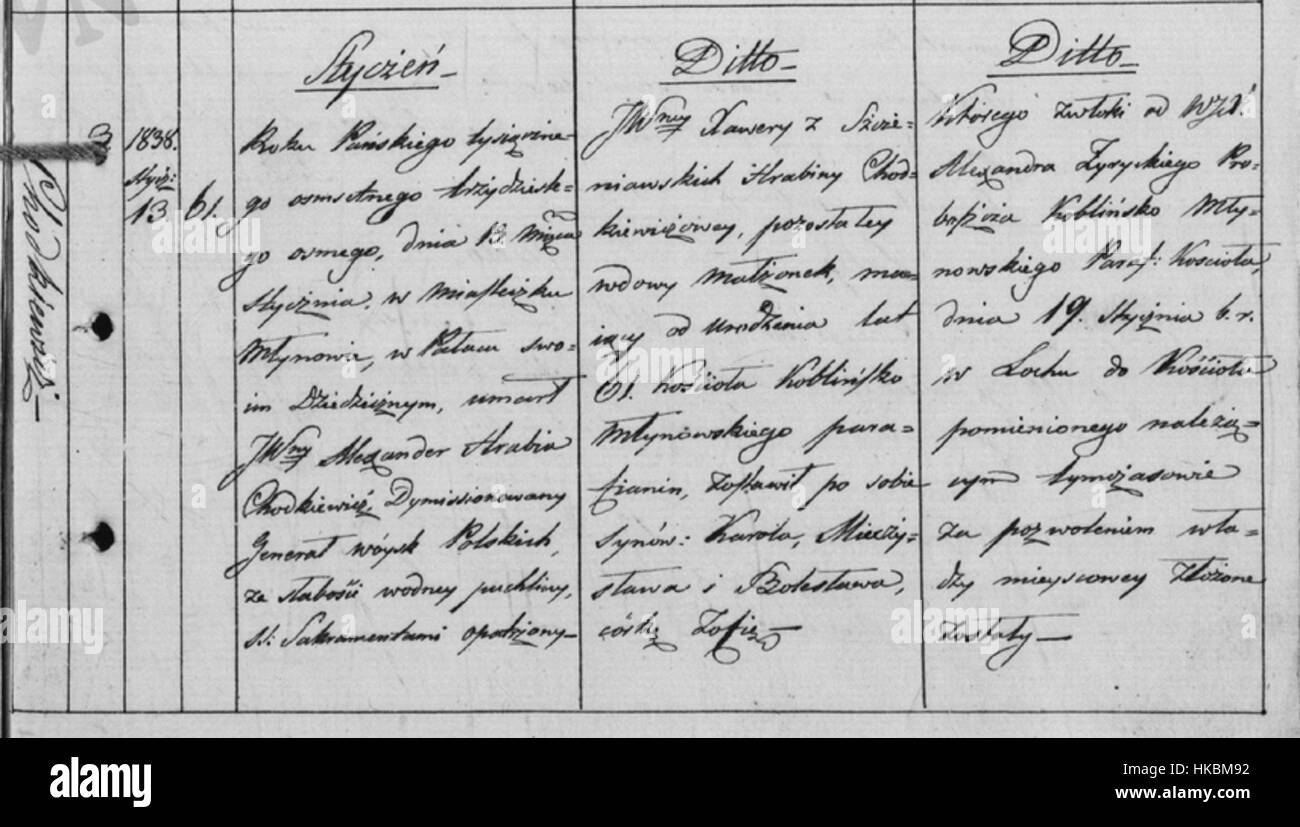 Chodkiewicz
3
1838.
Stycz:
13.
61.
Styczeń
Roku Pańskiego tysiączne-
go osmsetnego trzydziest-
go osmego, dnia 13. Miąca
Stycznia, w Miasteczku
Młynowie, w Pałacu swo-
im Dziedzicznym, umarł
JWny Alexander Hrabia
Chodkiewicz, Dymissionowany
Generał wóysk Polskich,
ze słabości wodney puchliny,
SS: Sakramentami opatrzony
Ditto
JWney Xawery z Szcze-
niawskich Hrabiny Chod-
kiewiczowey, pozostałey
wdowy małżonek, ma-
iący od Urodzenia lat
61. Kościoła Koblińsko
Młynowskiego para-
fianin, Zostawił po sobie
synów: Karola, Mieczy-
sława i Bolesława,
córkę Zofię
Ditto
Którego zwłoki od WJX.
Alexandra Zyryckiego Pro-
boszcza Koblińsko Mły-
nowskiego Paraf: Kościoła,
dnia 19. Stycznia b.r.
w Lochu do Kościoła
pomienionego należą-
cym tymczasowie
za pozwoleniem wła-
dzy mieyscowey złożone
zostały
alamy
alamy
www.alamy.com
Image ID: HKBM92